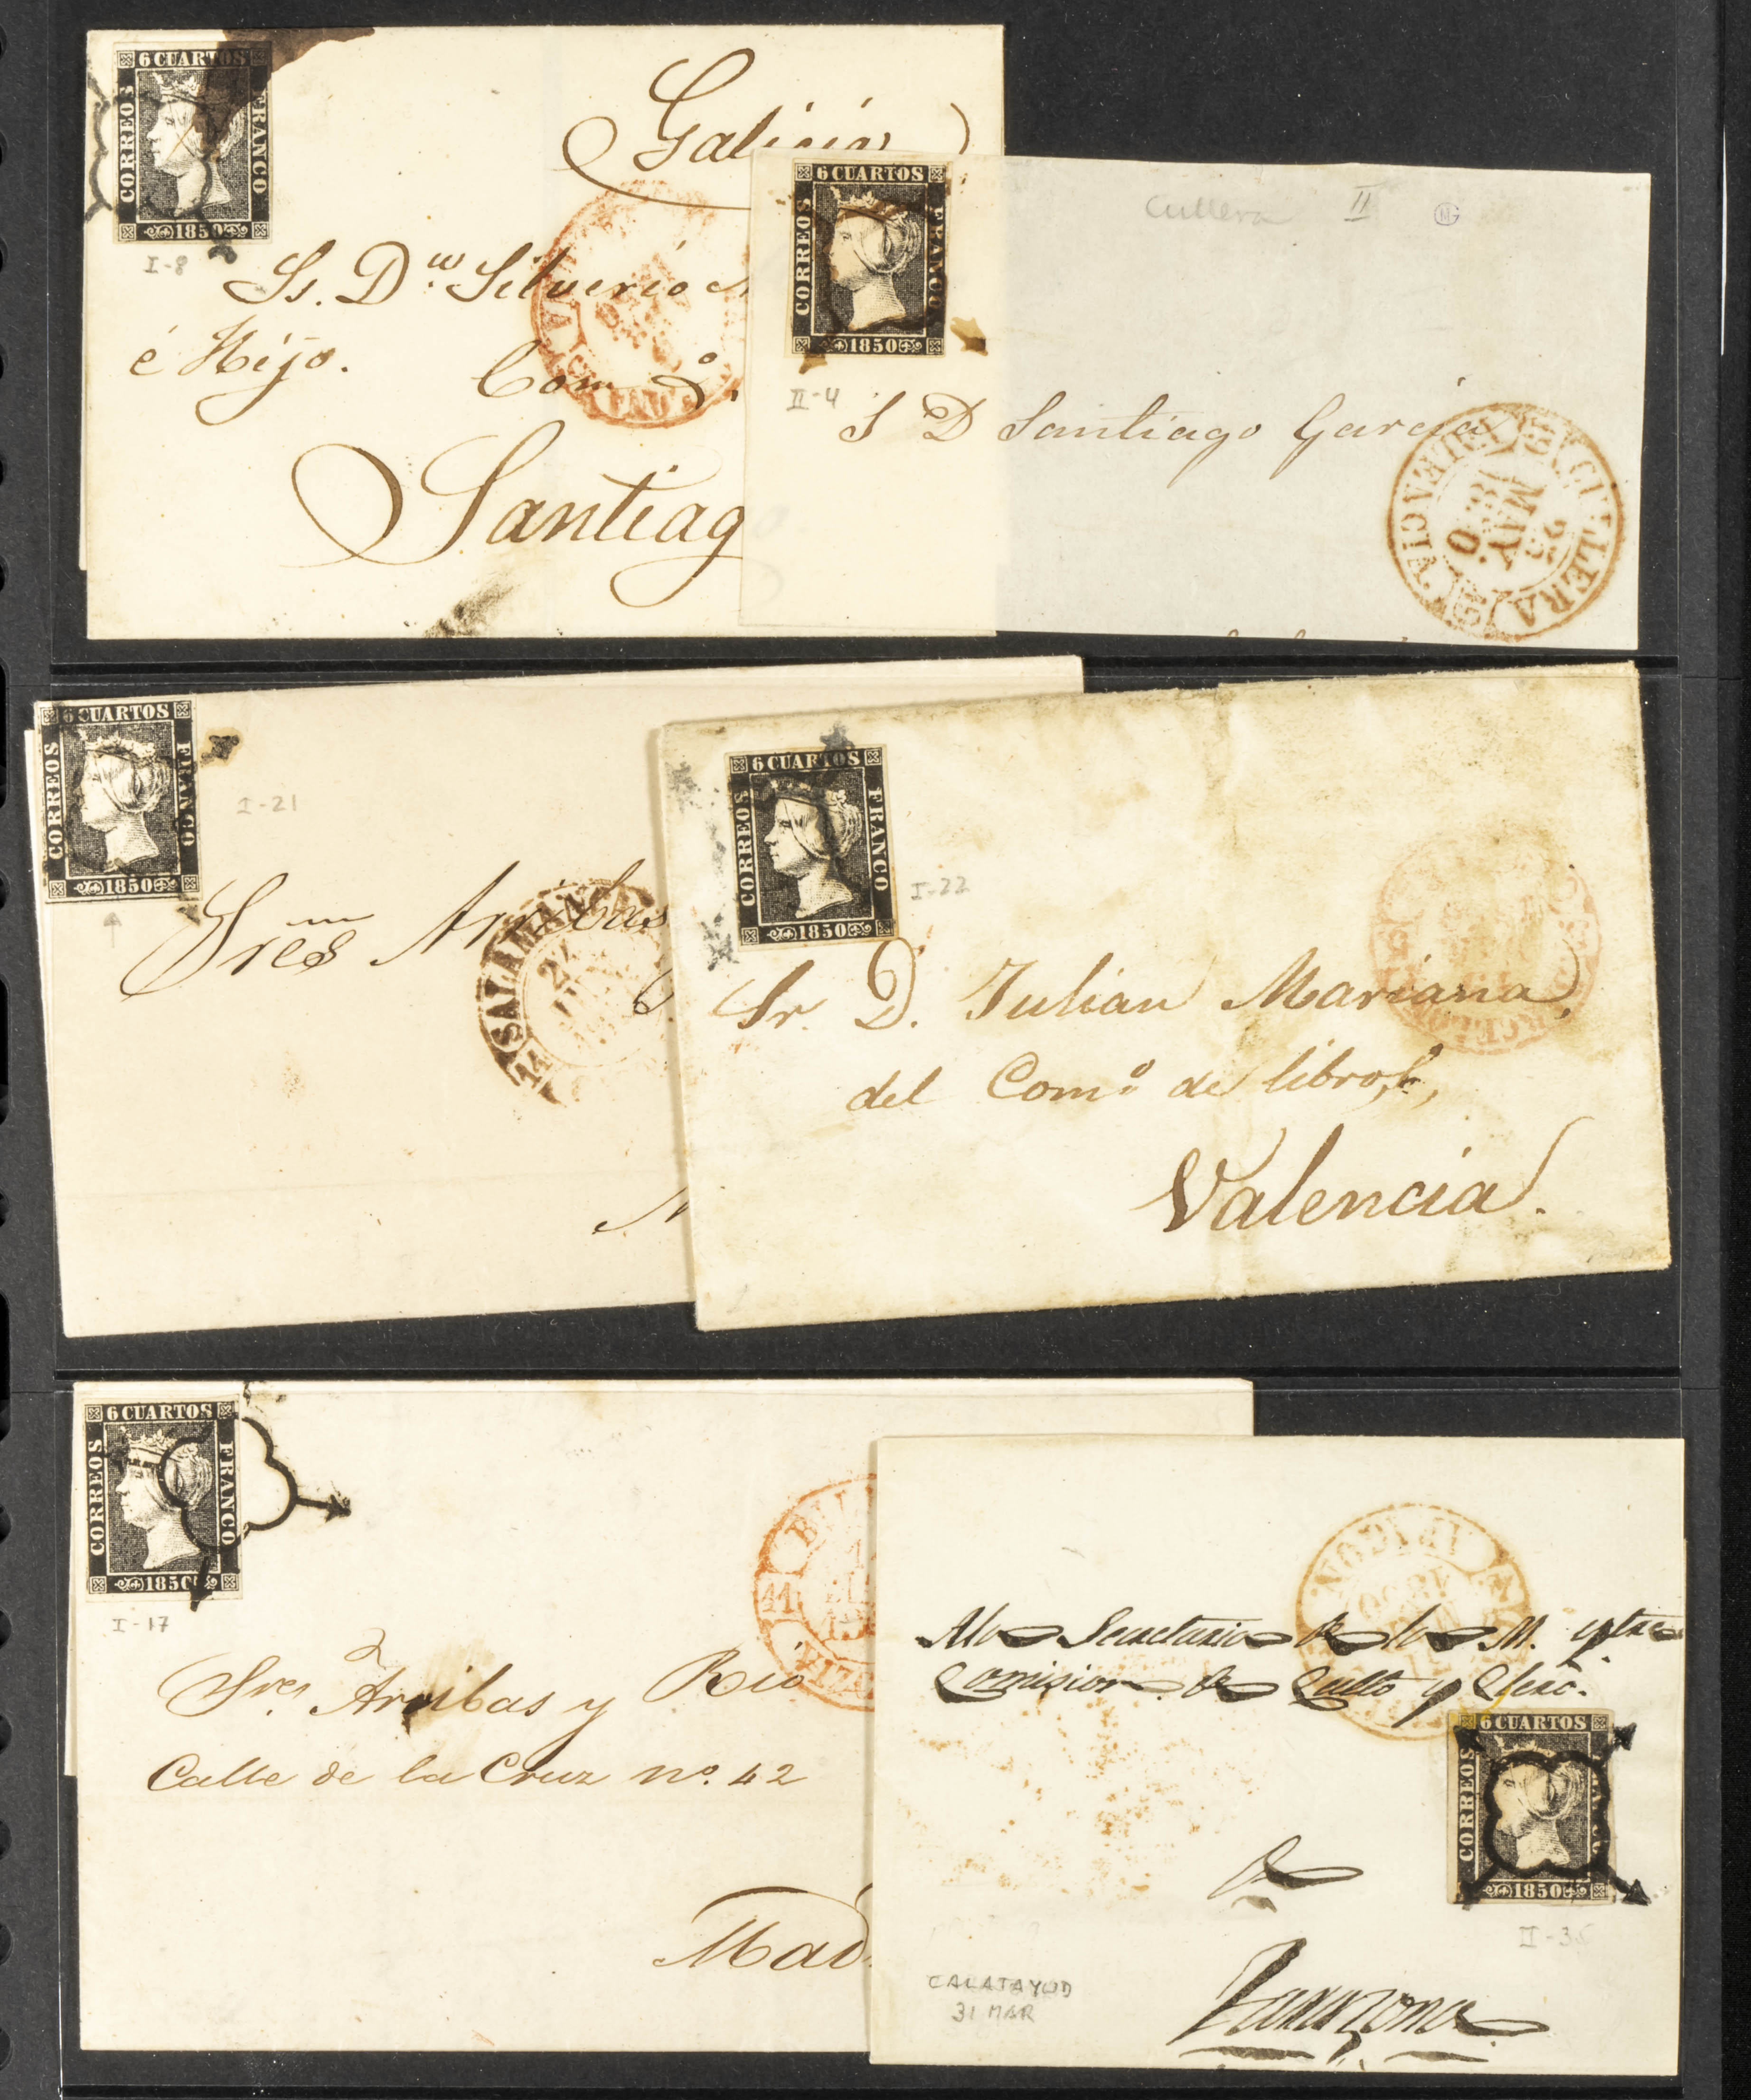 6 CUARTOS
CORREOS
FRANCO
1850
I-8
Galicia
Ss. D.ⁿ Silverio
é Hijo. Com.º
Santiag
6 CUARTOS
CORREOS
FRANCO
1850
II-4
Cullera II
S D Santiago Garcia
CULLERA
23
MAY
1850
VALENCIA
6 CUARTOS
CORREOS
FRANCO
1850
I-21
Sres Arribas
SALAMANCA
6 CUARTOS
CORREOS
FRANCO
1850
I-22
Sr. D. Julian Mariana,
del Com.º de libros,
Valencia.
6 CUARTOS
CORREOS
FRANCO
1850
I-17
Sres Arribas y Rio
Calle de la Cruz nº. 42
Mad
Secretario
Comision de Culto y Clero.
6 CUARTOS
CORREOS
1850
CALATAYUD
31 MAR
Tarazona